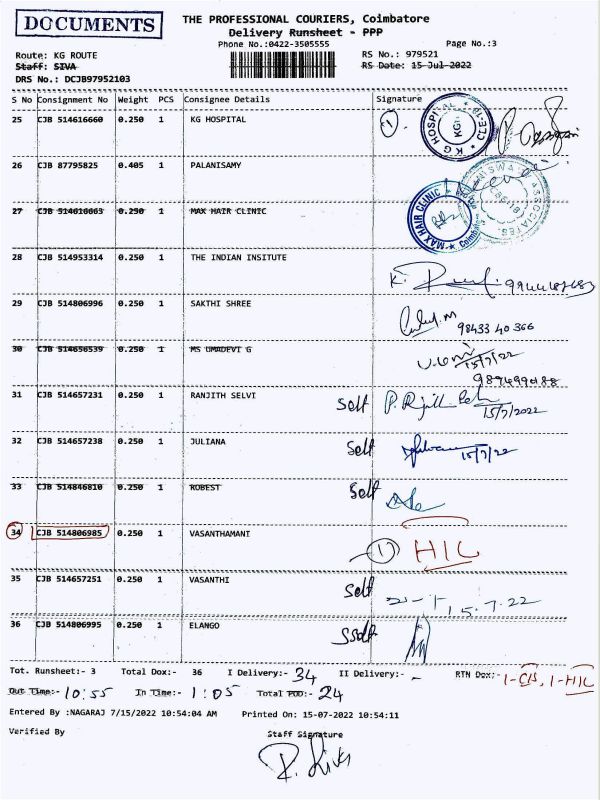 DOCUMENTS
THE PROFESSIONAL COURIERS, Coimbatore
Delivery Runsheet - PPP
Phone No.:0422-3505555
Page No.:3
Route: KG ROUTE
RS No.: 979521
Staff: SIVA
RS Date: 15-Jul-2022
DRS No.: DCJB97952103
S No Consignment No Weight PCS Consignee Details Signature
25 CJB 514616660 0.250 1 KG HOSPITAL 1
KG HOSPITAL
26 CJB 87795825 0.405 1 PALANISAMY
ASSOCIATES
27 CJB 514616663 0.250 1 MAX HAIR CLINIC
MAX HAIR CLINIC Coimbatore
28 CJB 514953314 0.250 1 THE INDIAN INSITUTE
29 CJB 514806996 0.250 1 SAKTHI SHREE
98433 40 366
30 CJB 514656539 0.250 1 MS UMADEVI G
15/7/22
31 CJB 514657231 0.250 1 RANJITH SELVI Self
15/7/2022
32 CJB 514657238 0.250 1 JULIANA Self
15/7/22
33 CJB 514846810 0.250 1 ROBEST Self
34 CJB 514806985 0.250 1 VASANTHAMANI 1 HIC
35 CJB 514657251 0.250 1 VASANTHI Self
15.7.22
36 CJB 514806995 0.250 1 ELANGO Self
Tot. Runsheet:- 3 Total Dox:- 36 I Delivery:- 34 II Delivery:- - RTN Dox:- 1-HIC
Out Time:- 10:55 In Time:- 1:05 Total POD:- 24
Entered By :NAGARAJ 7/15/2022 10:54:04 AM Printed On: 15-07-2022 10:54:11
Verified By Staff Signature